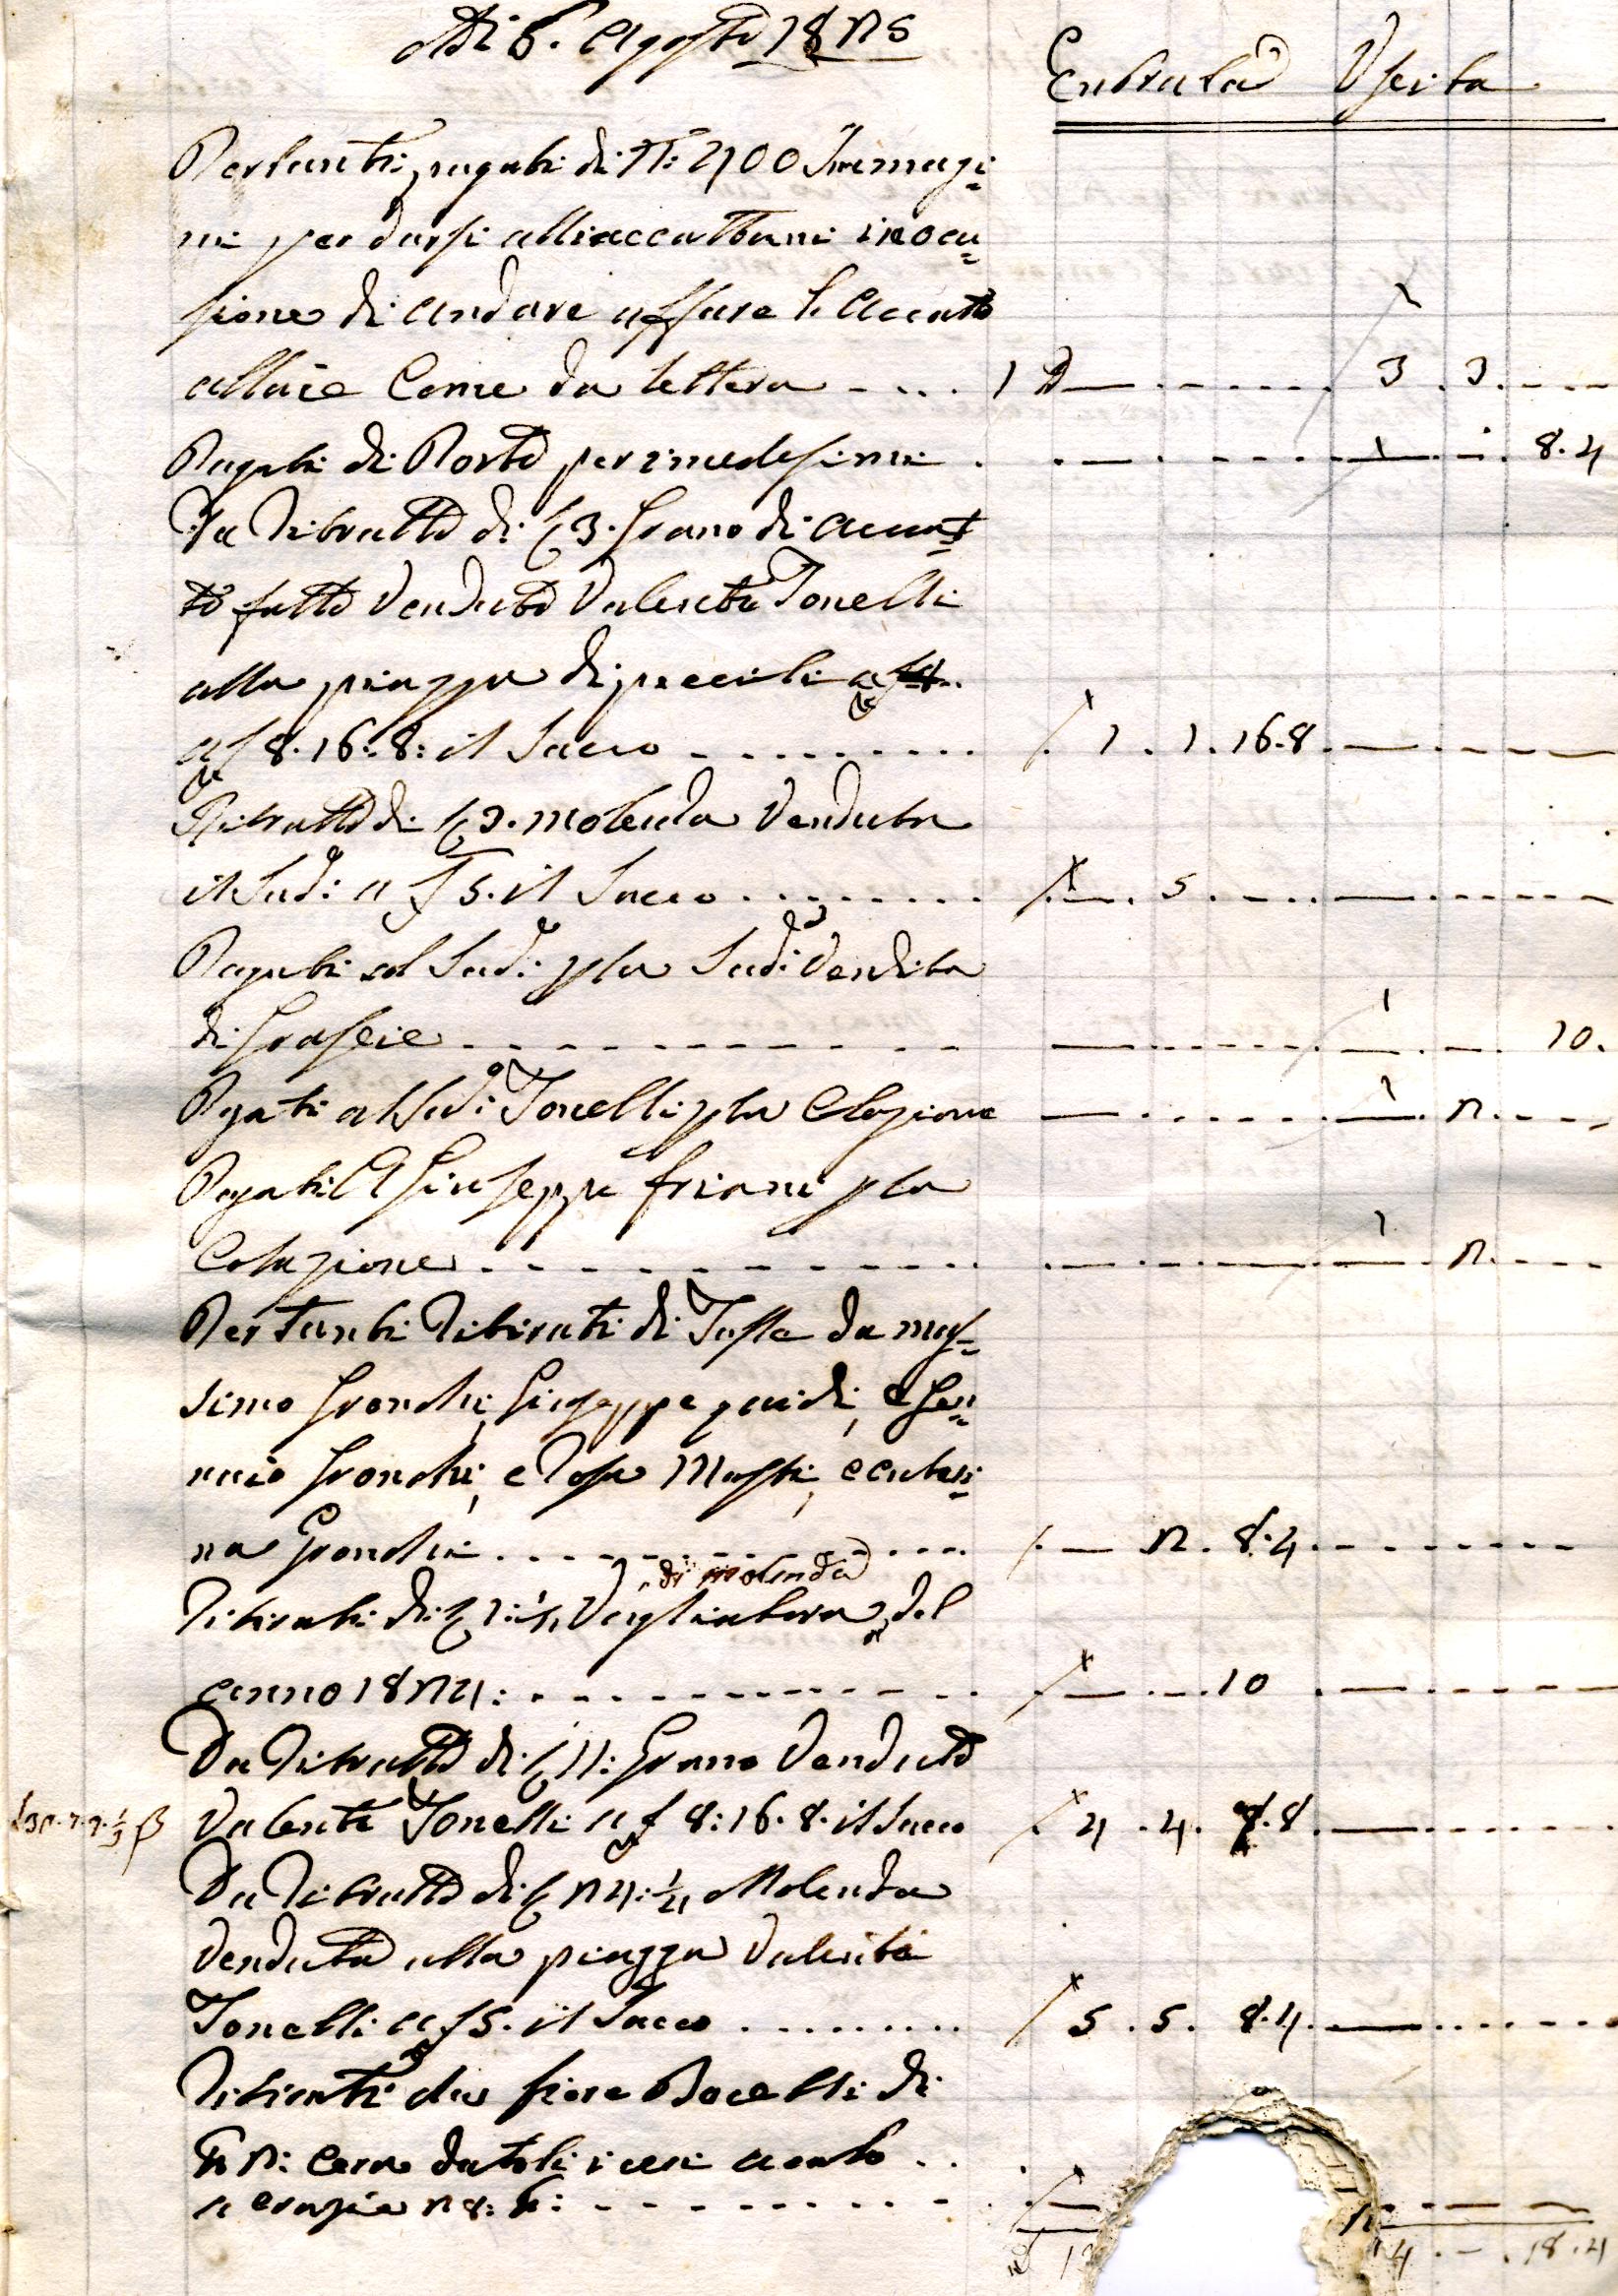 Adi 6. Agosto 1825
Entrata Uscita
Per tanti pagati di N: 2400 Immagi=
ni per darsi alli accattanti in oca=
sione di andare affare l'accatto
alla ie Come da lettera - - - - 3 . 3 . - - -
Pagati di Porto per i medesimi . - - - - 8.4
Da Ritratto di 3. Grano di accat=
to fatto Venduto Valente Tonelli
alla piazza di peccioli a
a f 8. 16: 8: il Sacco - - - - 1 . 1 . 16.8
Ritratto di 3. molenda Venduta
il Sud: a f 5. il Sacco . . . . . 5 . - - -
Pagati al Sud: p la Sud: Vendita
di Grascie - - - - 10.
Pgati al Sud: Tonelli p la Colazione - - - - 2 . - - -
Pagati A Giuseppe friani p la
Colazione - - - - 2 . - - -
Per Tanti Ritirati di Tasse da mas=
simo Gronchi, Giuseppe guidi, e Gen=
naio Gronchi, e Rosa Masti, e cateri=
na Gronchi . . . . 2 . 8.4 . - - -
di molenda
Ritirati di Vagliatura del
anno 1824: - - - - 10 . - - -
Da Ritratto di 11: Grano Venduto
Valente Tonelli a f 8: 16. 8. il Sacco 4 . 4 . 8.8 . - - -
Da Ritratto di 24: 1/4 Molenda
Venduta alla piazza Valente
Tonelli a f 5. il Sacco . . . . 5 . 5 . 8.4 . - - -
Ritirati da fiore Bacelli di
2: Cera datoli
a crazie 28: - - - -
4 . - . 18.4